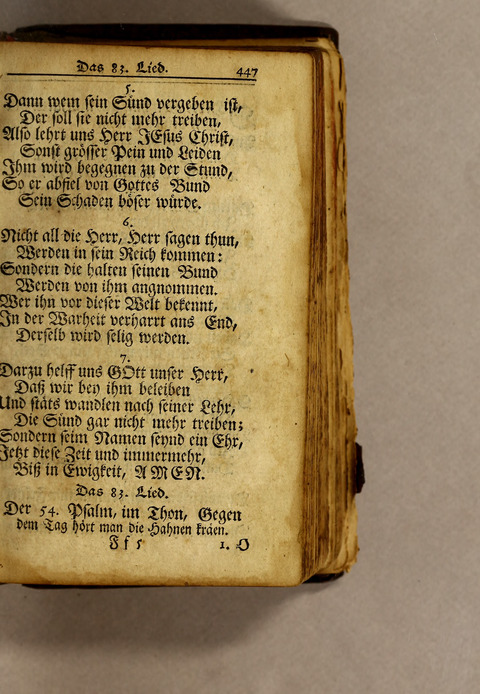 Das 83. Lied. 447
5.
Dann wem sein Sünd vergeben ist,
Der soll sie nicht mehr treiben,
Also lehrt uns Herr JEsus Christ,
Sonst grösser Pein und Leiden
Ihm wird begegnen zu der Stund,
So er abfiel von Gottes Bund
Sein Schaden böser würde.
6.
Nicht all die Herr, Herr sagen thun,
Werden in sein Reich kommen:
Sondern die halten seinen Bund
Werden von ihm angnommen.
Wer ihn vor dieser Welt bekennt,
In der Warheit verharrt ans End,
Derselb wird selig werden.
7.
Darzu helff uns GOtt unser Herr,
Daß wir bey ihm beleiben
Und stäts wandlen nach seiner Lehr,
Die Sünd gar nicht mehr treiben;
Sondern seim Namen seynd ein Ehr,
Jetzt diese Zeit und immermehr,
Biß in Ewigkeit, AMEN.
Das 83. Lied.
Der 54. Psalm, im Thon, Gegen
dem Tag hört man die Hahnen kräen.
F f 5 1. O